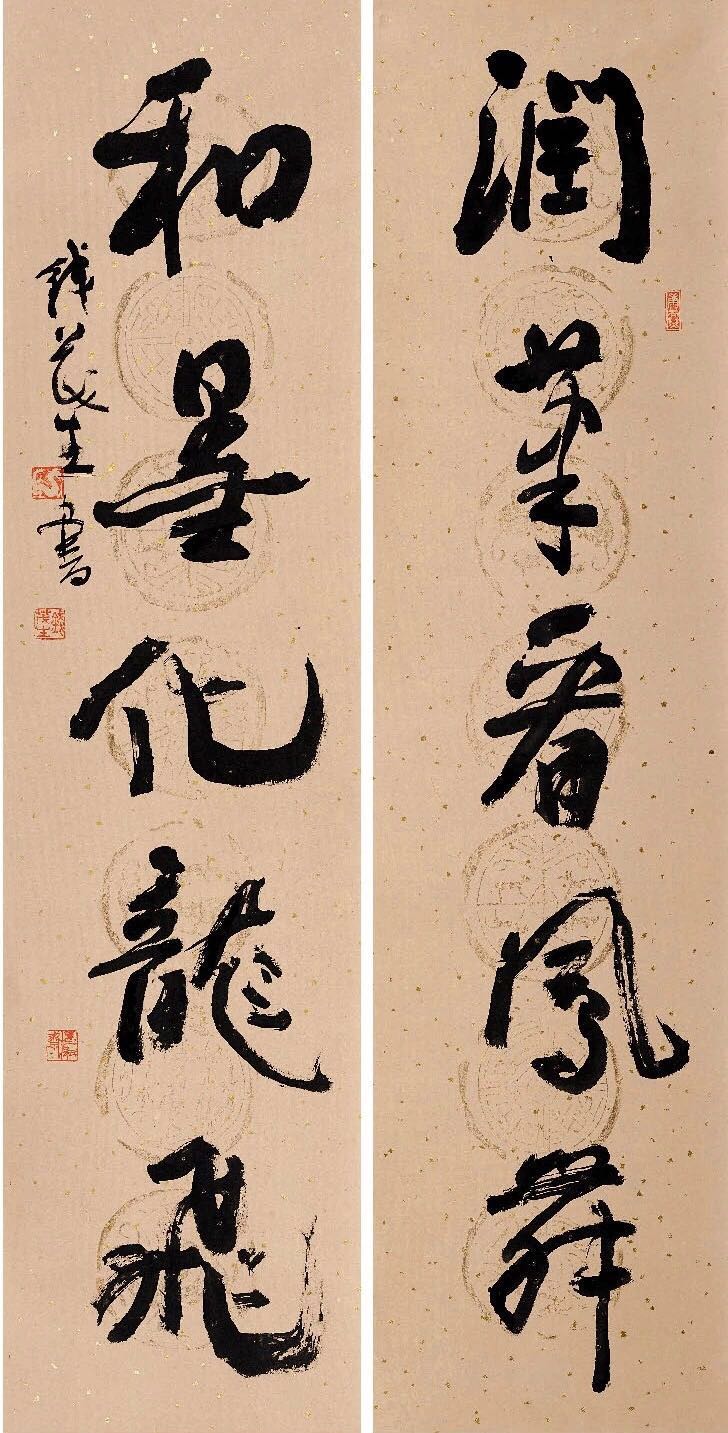 潤筆看鳳舞
和墨化龍飛
錢茂生書
錢茂生